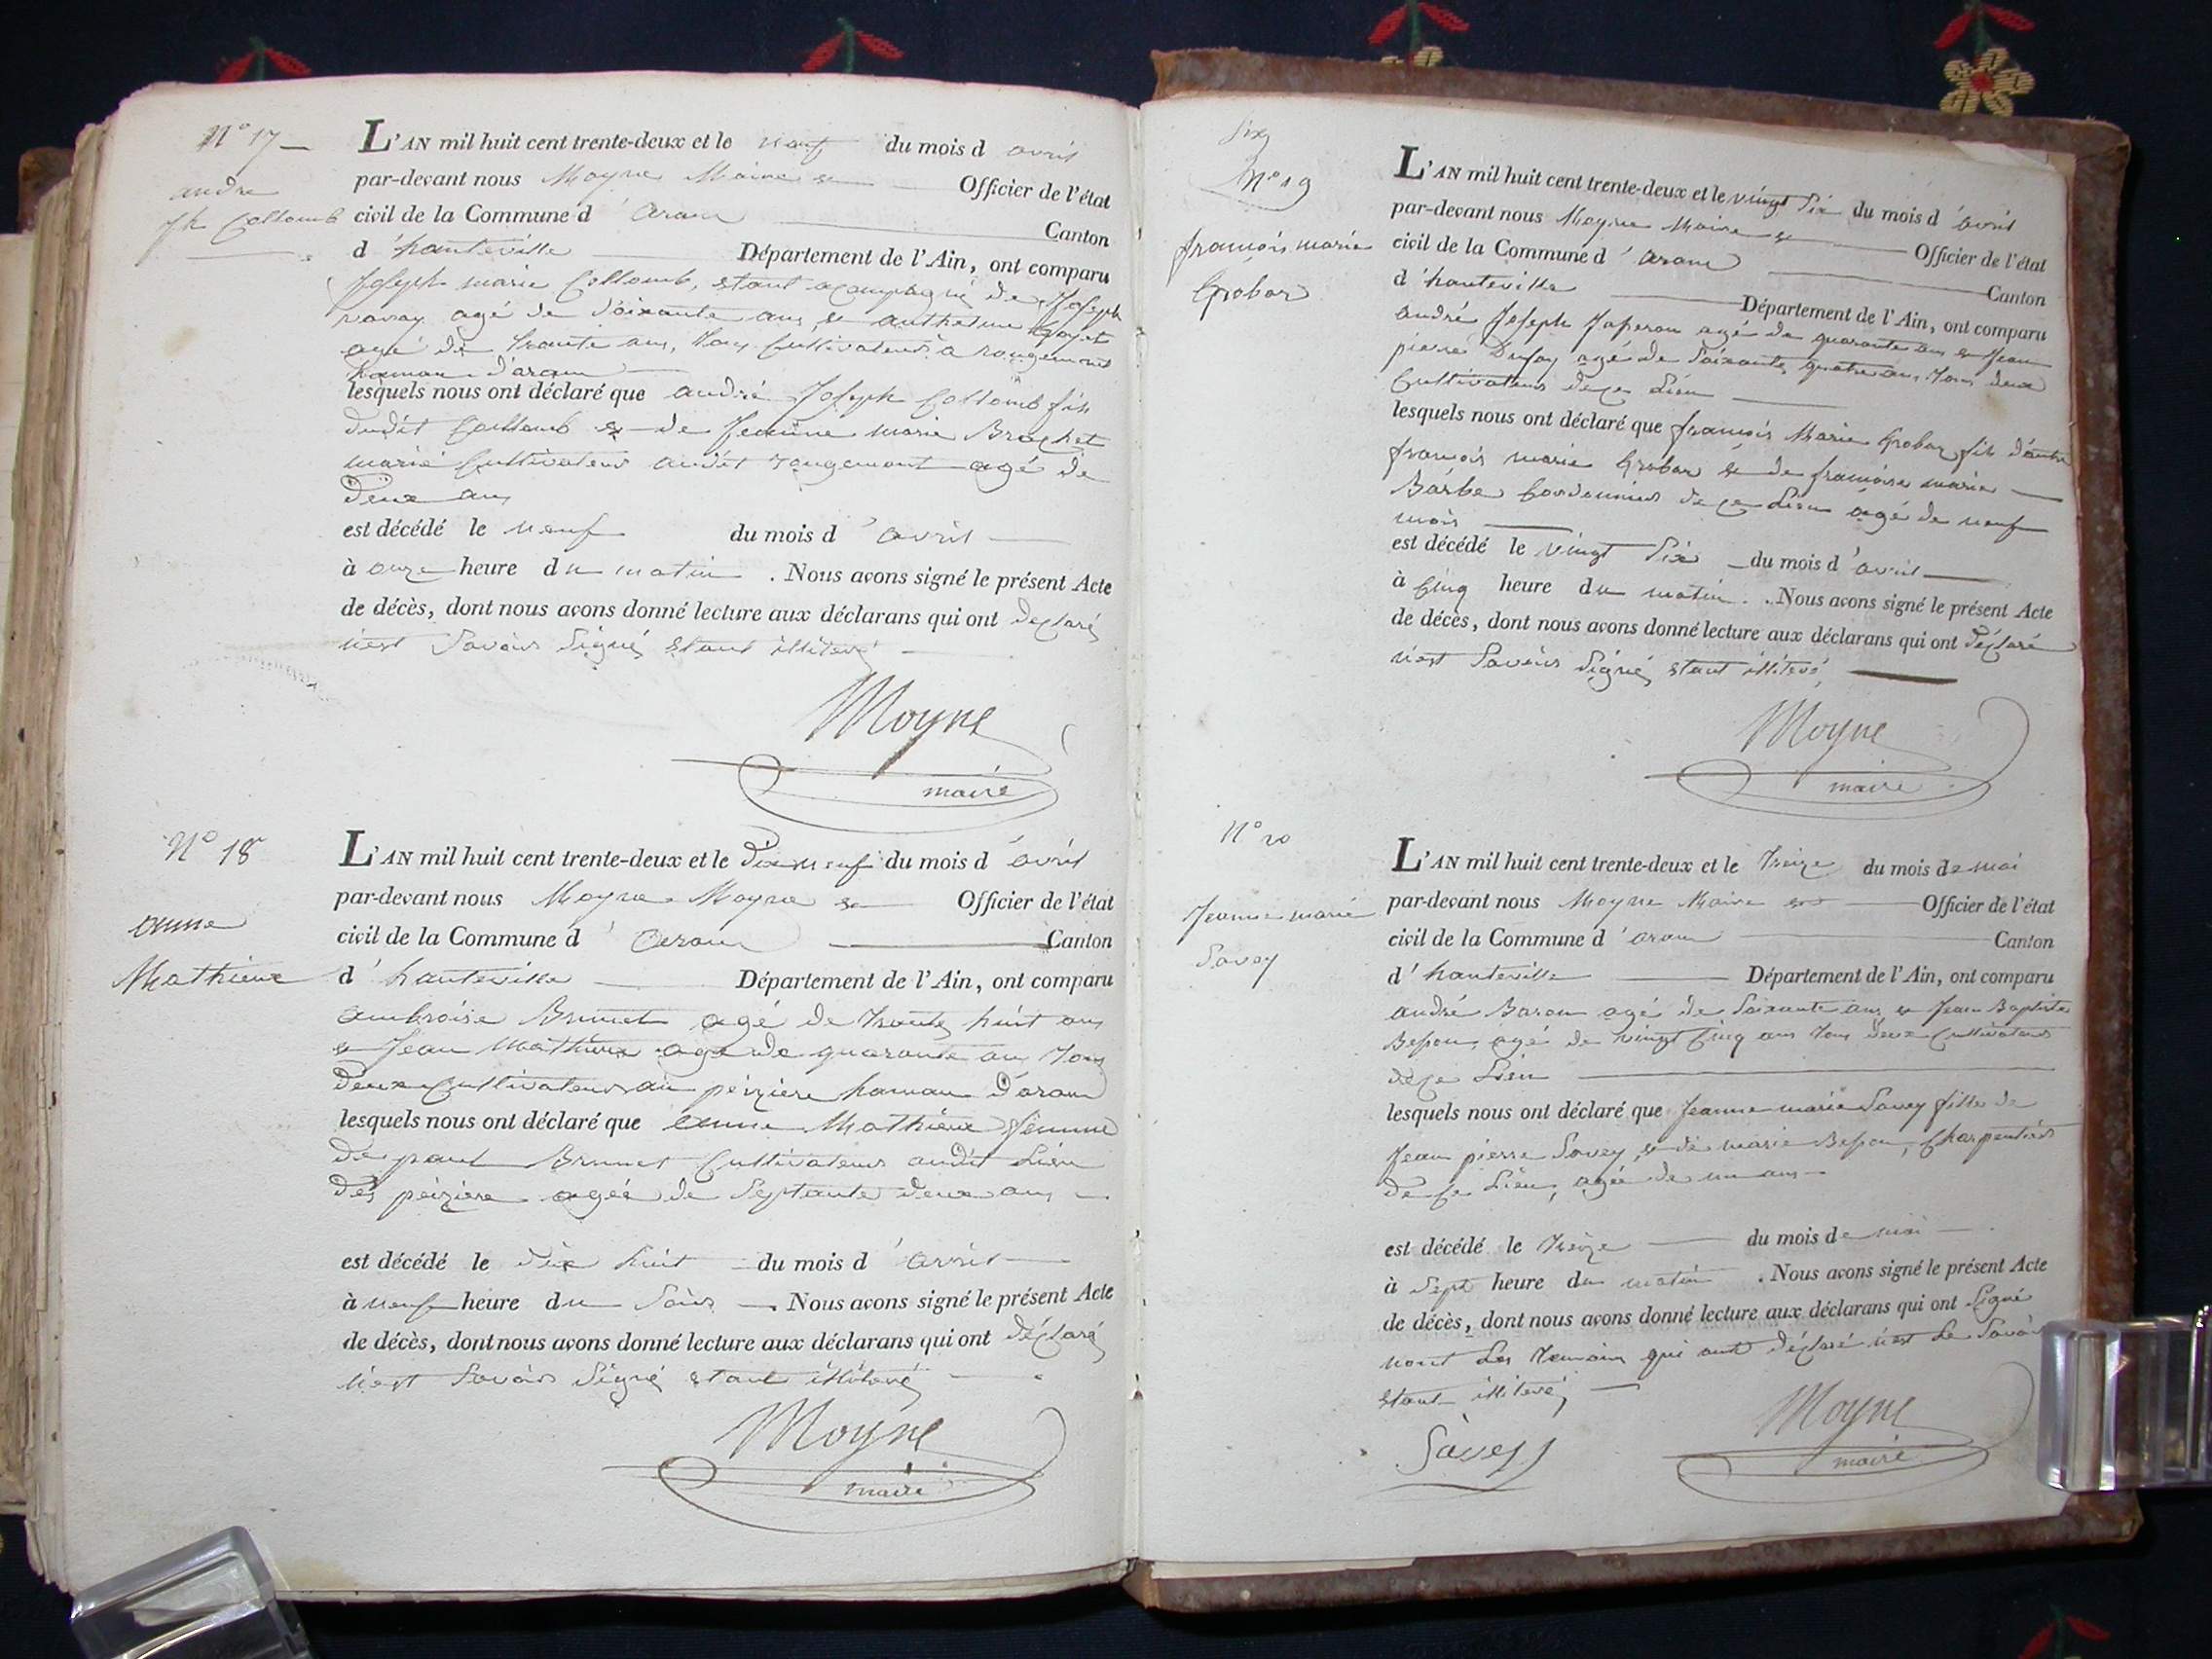 N° 17
andre
jh Collomb
L'AN mil huit cent trente-deux et le neuf du mois d'avril
par-devant nous Moyne Maire et Officier de l'état
civil de la Commune d'aranc Canton
d'hauteville Département de l'Ain, ont comparu
Joseph marie Collomb, étant acompagné de Joseph
agé de soixante ans, et anthelme goyet
agé de trante ans, tous Cultivateurs a rougemont
hamau d'aranc
lesquels nous ont déclaré que andré Joseph Collomb fils
dudit Collomb et de Jeanne marie Brochet
marié Cultivateur audit rougemont agé de
deux ans
est décédé le neuf du mois d'avril
à onze heure du matin. Nous avons signé le présent Acte
de décès, dont nous avons donné lecture aux déclarans qui ont déclaré
n'est savoir signé étant illiteré
Moyne
maire
N° 18
anne
Mathieux
L'AN mil huit cent trente-deux et le dix neuf du mois d'avril
par-devant nous Moyne Moyne et Officier de l'état
civil de la Commune d'aranc Canton
d'hauteville Département de l'Ain, ont comparu
ambroise Brunet agé de trante huit ans
et Jean Mathieux agé de quarante ans tous
deux Cultivateurs au péizière hamau d'aranc
lesquels nous ont déclaré que anne Mathieux femme
de paul Brunet Cultivateur audit Lieu
des péizière agée de Septante deux ans
est décédé le dix huit du mois d'avril
à neuf heure du soir. Nous avons signé le présent Acte
de décès, dont nous avons donné lecture aux déclarans qui ont déclaré
n'est savoir signé étant illiteré
Moyne
maire
six
N° 19
françois marie
Grobas
L'AN mil huit cent trente-deux et le vingt six du mois d'avril
par-devant nous Moyne Maire et Officier de l'état
civil de la Commune d'aranc Canton
d'hauteville Département de l'Ain, ont comparu
andré Joseph Japeron agé de quarante ans et Jean
pierre Dufay agé de soixante quatre ans, tous deux
Cultivateurs de ce Lieu
lesquels nous ont déclaré que françois Marie Grobas fils d'autre
françois marie Grobas et de françoise marie
Barbe Cordonnier de ce Lieu agé de neuf
mois
est décédé le vingt six du mois d'avril
à Cinq heure du matin. Nous avons signé le présent Acte
de décès, dont nous avons donné lecture aux déclarans qui ont déclaré
n'est savoir signé étant illiteré,
Moyne
maire
N° 20
Jeanne marie
Savey
L'AN mil huit cent trente-deux et le treize du mois de mai
par-devant nous Moyne Maire et Officier de l'état
civil de la Commune d'aranc Canton
d'hauteville Département de l'Ain, ont comparu
andré Baron agé de soixante ans et Jean Baptiste
Besson, agé de vingt Cinq ans tous deux Cultivateurs
de ce Lieu
lesquels nous ont déclaré que Jeanne marie Savey fille de
Jean pierre Savey, et de marie Besson, Charpentier
de ce Lieu, agée de un ans
est décédé le treize du mois de mai
à Sept heure du matin. Nous avons signé le présent Acte
de décès, dont nous avons donné lecture aux déclarans qui ont signé
nont les temoins qui ont déclaré n'est le savoir
étant illiteré
Savey
Moyne
maire